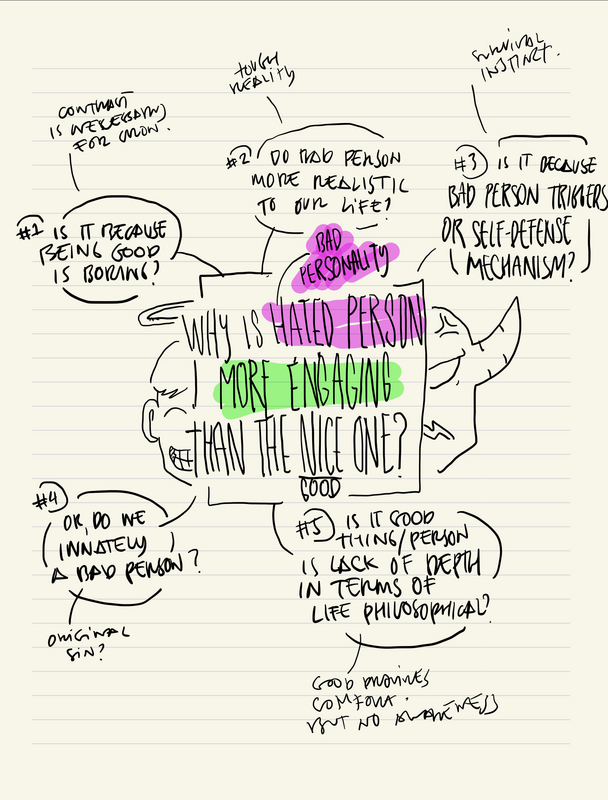 TOUGH
REALITY
SURVIVAL
INSTINCT.
CONTRAST
IS NECESSARY
FOR
#2 DO BAD PERSON
MORE REALISTIC
TO OUR LIFE?
#3 IS IT BECAUSE
BAD PERSON TRIGGERS
OR SELF-DEFENSE
MECHANISM?
#1 IS IT BECAUSE
BEING GOOD
IS BORING?
BAD
PERSONALITY
WHY IS HATED PERSON
MORE ENGAGING
THAN THE NICE ONE?
GOOD
#4
OR, DO WE
INNATELY
A BAD PERSON?
ORIGINAL
SIN?
#5 IS IT GOOD
THING/PERSON
IS LACK OF DEPTH
IN TERMS OF
LIFE PHILOSOPHICAL?
GOOD PROVIDES
COMFORT.
BUT NO AWARENESS